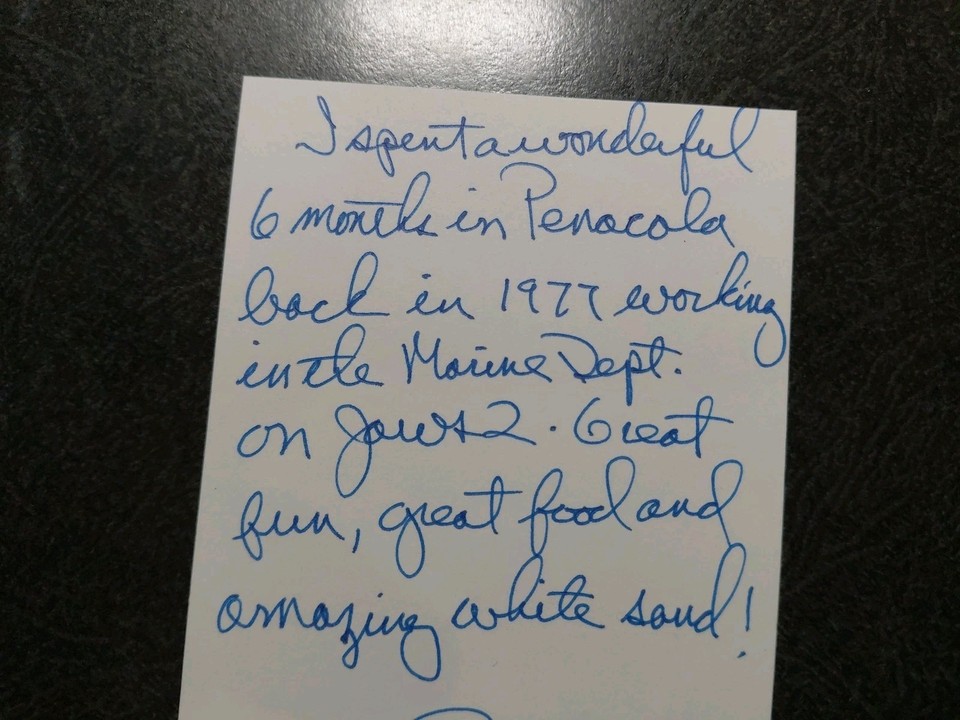 I spent a wonderful
6 months in Penacola
back in 1977 working
in the Marine Dept.
on Jaws 2. Great
fun, great food and
amazing white sand!